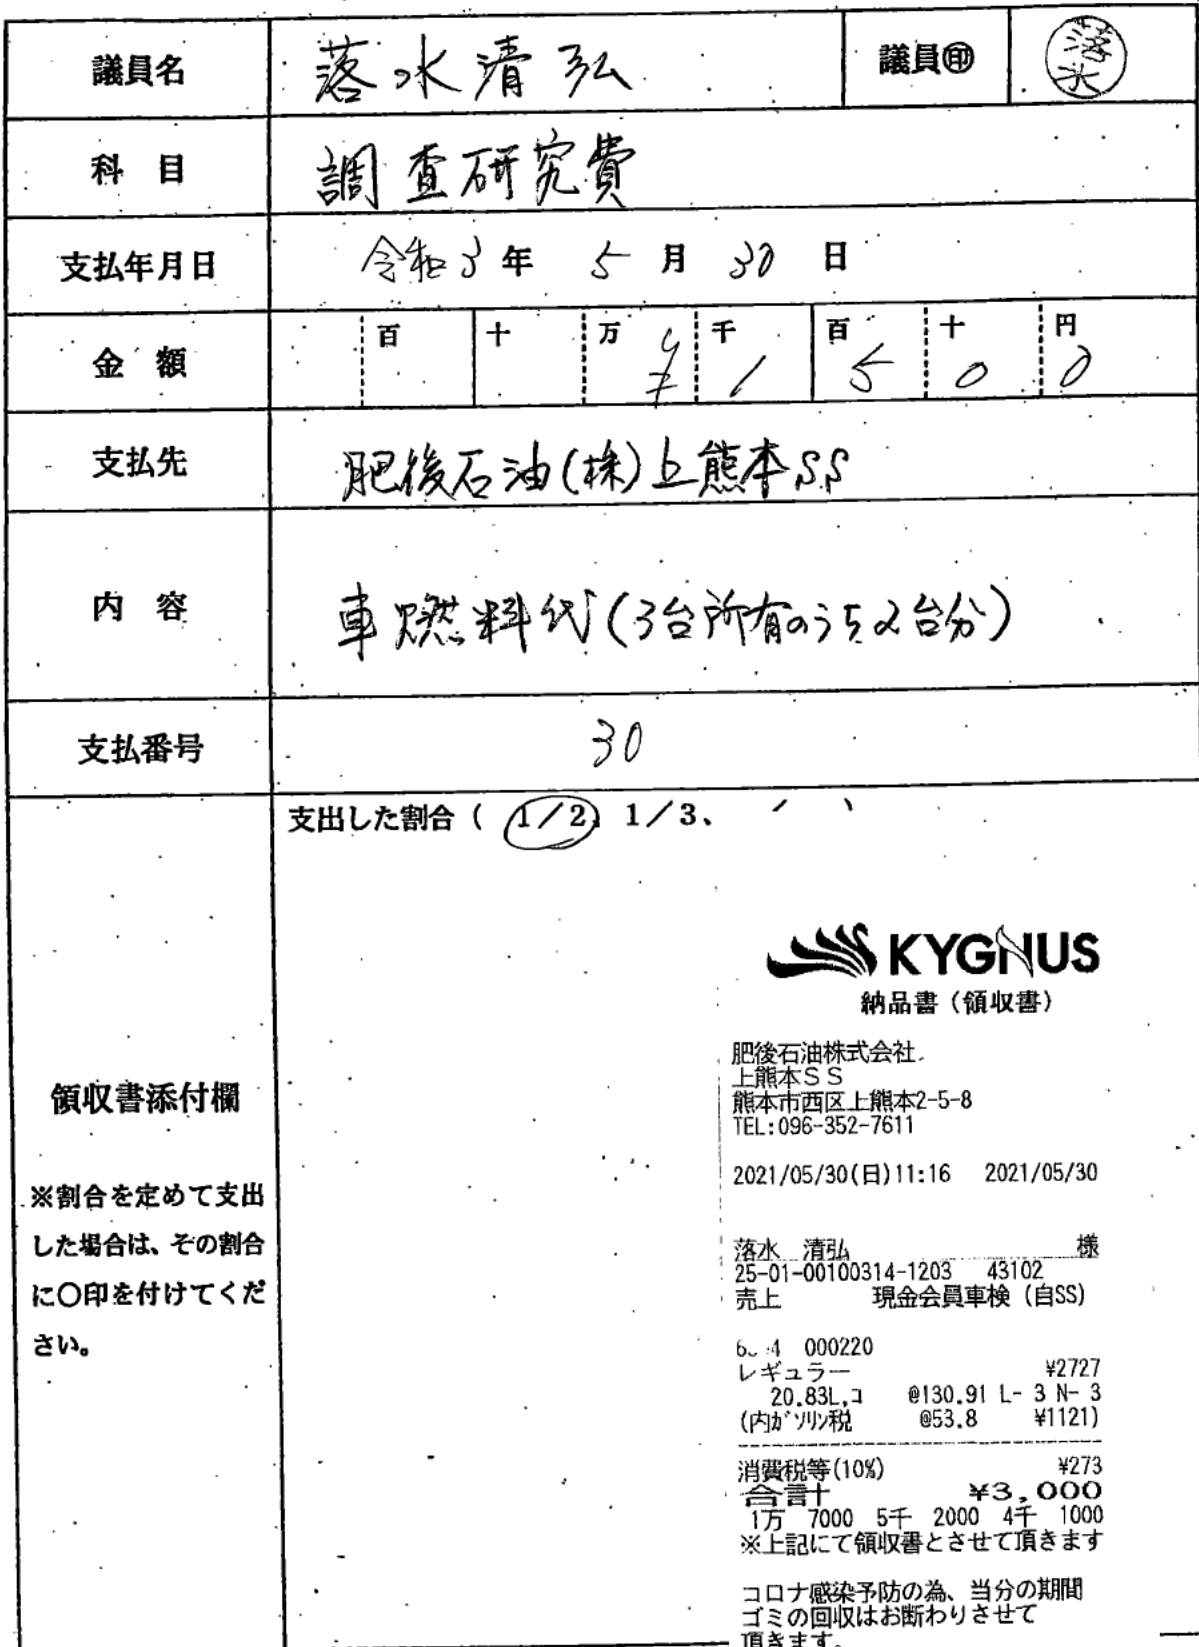 議員名 落水清弘 議員㊞ 落水
科 目 調査研究費
支払年月日 令和3年 5月 30日
金 額 百 十 万 千 百 十 円
¥ 1 5 0 0
支払先 肥後石油(株)上熊本SS
内 容 車燃料代(3台所有のうち2台分)
支払番号 30
支出した割合( 1/2、1/3、 / )
領収書添付欄
※割合を定めて支出
した場合は、その割合
に〇印を付けてくだ
さい。
KYGNUS
納品書(領収書)
肥後石油株式会社
上熊本SS
熊本市西区上熊本2-5-8
TEL:096-352-7611
2021/05/30(日)11:16 2021/05/30
落水 清弘 様
25-01-00100314-1203 43102
売上 現金会員車検(自SS)
000220
レギュラー ¥2727
20.83L,コ @130.91 L- 3 N- 3
(内ガソリン税 @53.8 ¥1121)
消費税等(10%) ¥273
合計 ¥3,000
1万 7000 5千 2000 4千 1000
※上記にて領収書とさせて頂きます
コロナ感染予防の為、当分の期間
ゴミの回収はお断わりさせて
頂きます。